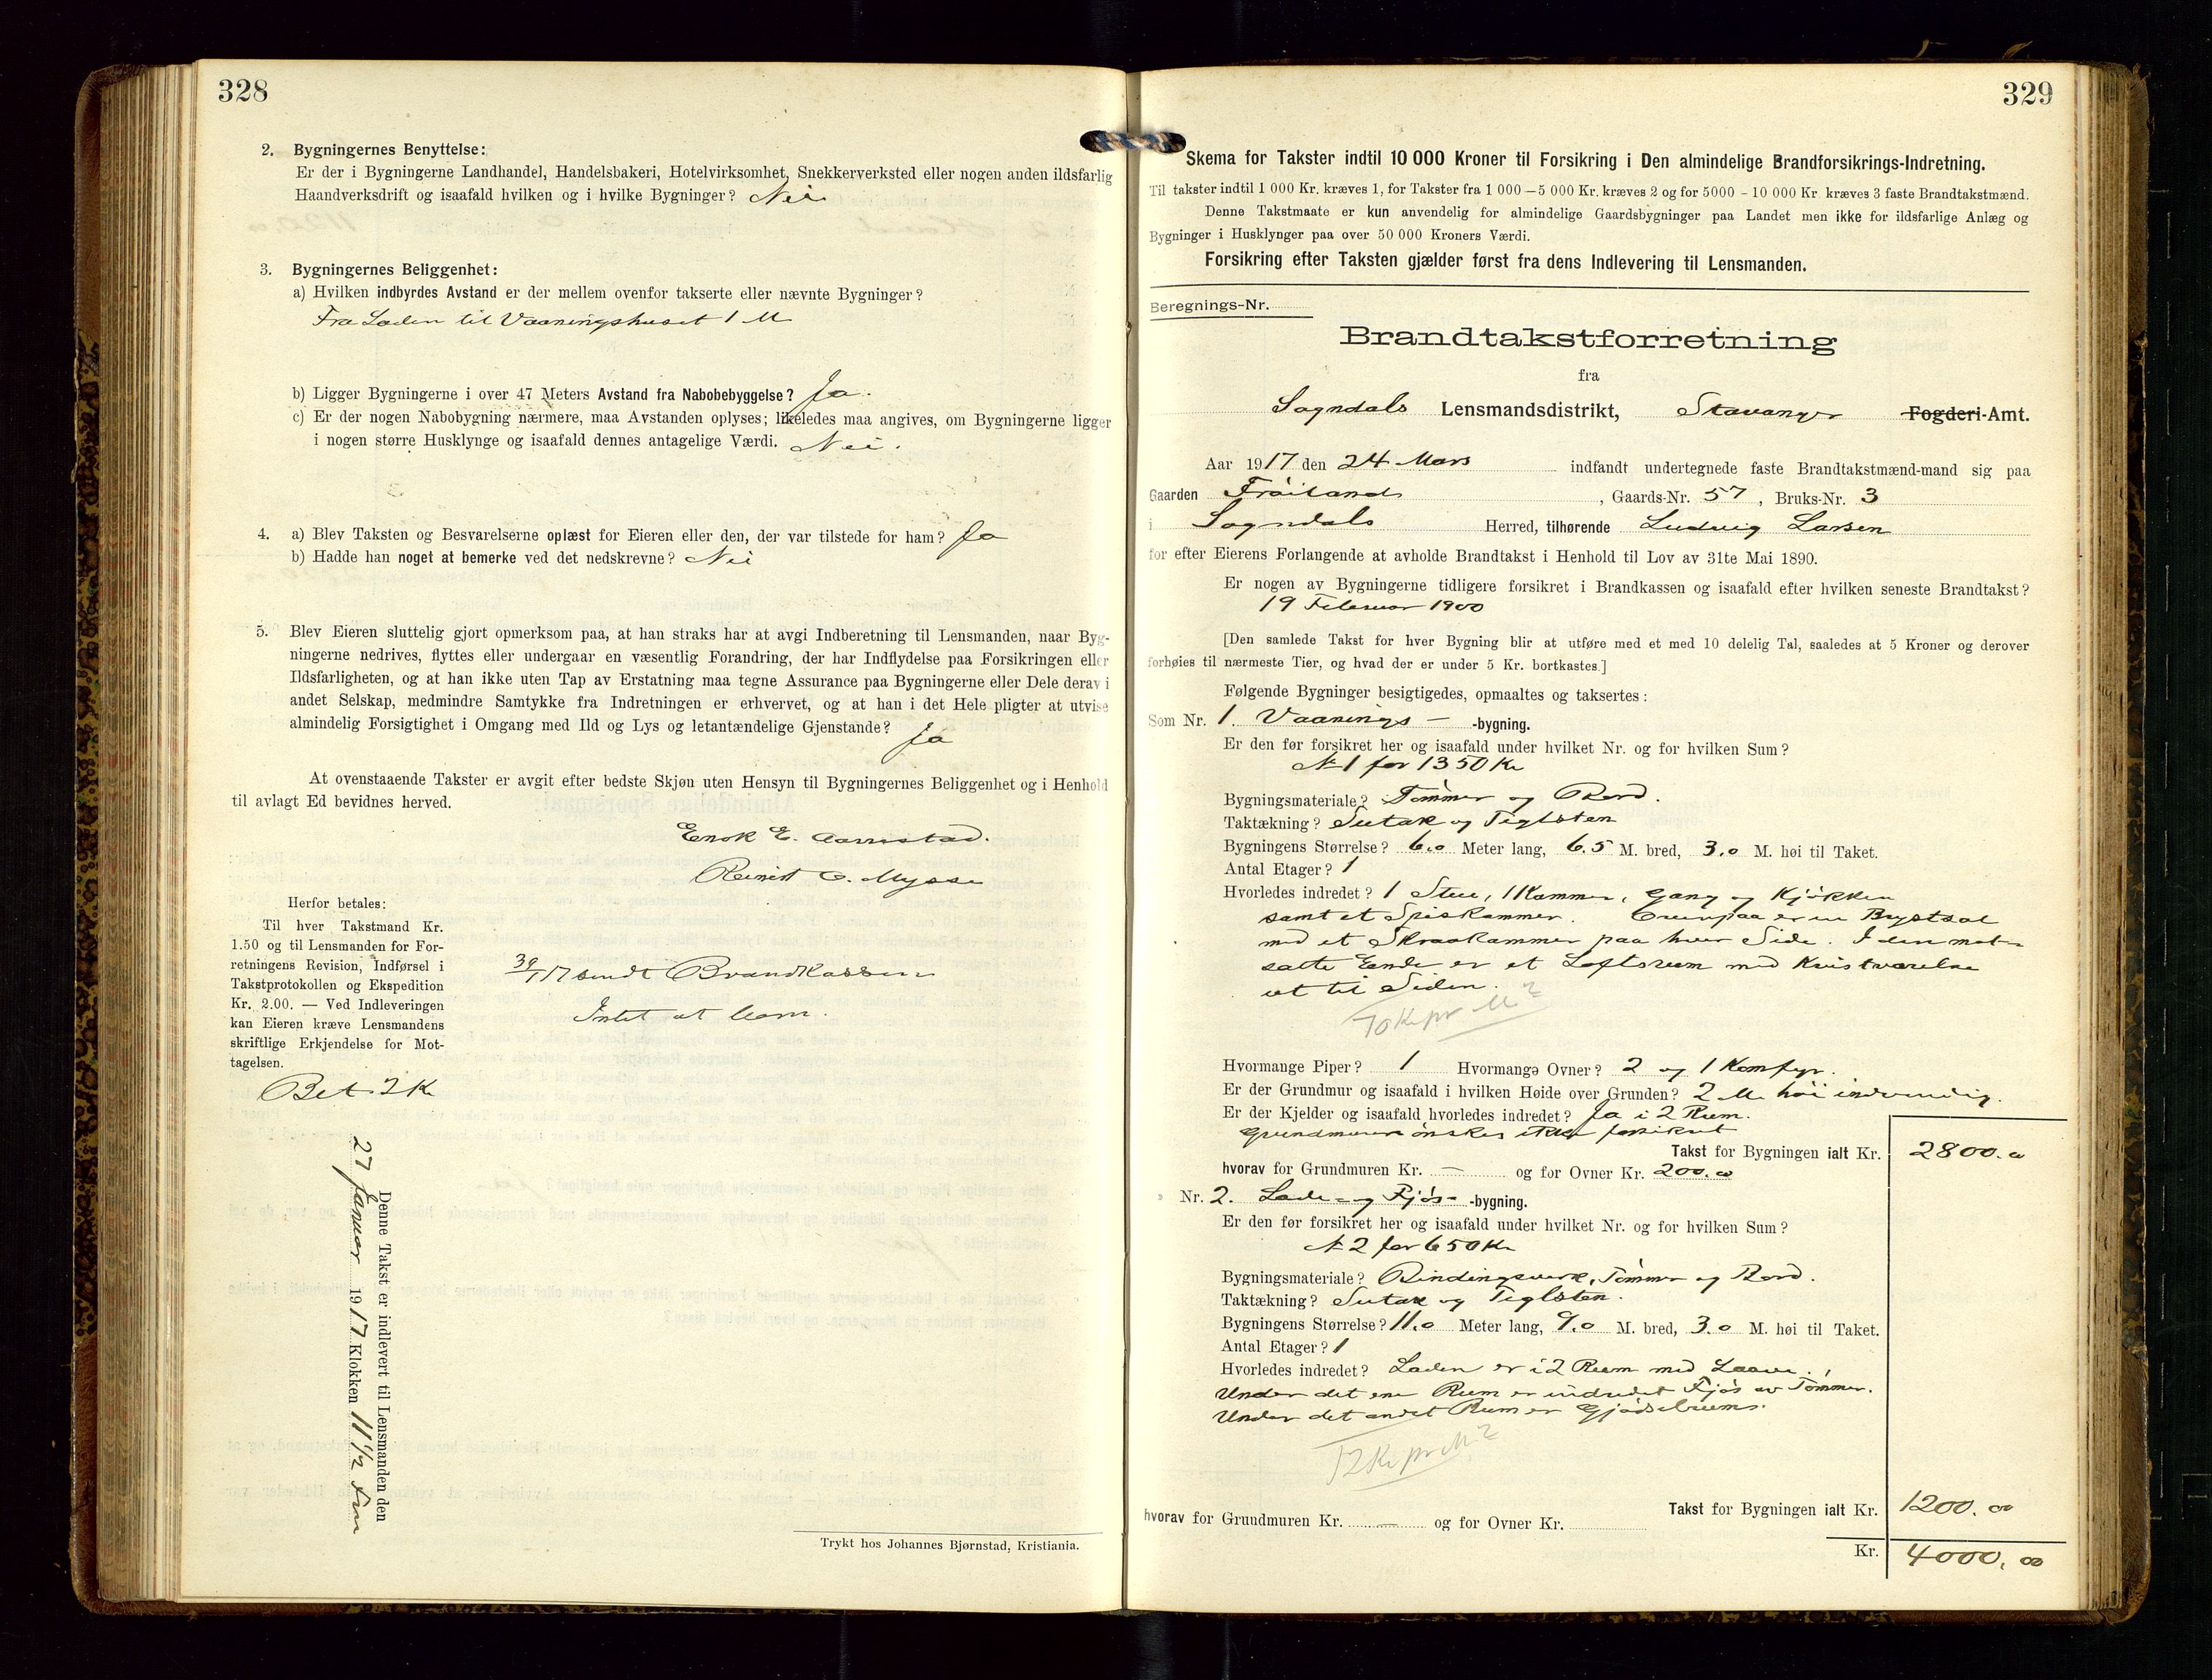 328
2. Bygningernes Benyttelse:
Er der i Bygningerne Landhandel, Handelsbakeri, Hotelvirksomhet, Snekkerverksted eller nogen anden ildsfarlig
Haandverksdrift og isaafald hvilken og i hvilke Bygninger? Nei
3. Bygningernes Beliggenhet:
a) Hvilken indbyrdes Avstand er der mellem ovenfor takserte eller nævnte Bygninger?
Fra Laden til Vaaningshuset 1 M
b) Ligger Bygningerne i over 47 Meters Avstand fra Nabobebyggelse? Ja.
c) Er der nogen Nabobygning nærmere, maa Avstanden oplyses; likeledes maa angives, om Bygningerne ligger
i nogen større Husklynge og isaafald dennes antagelige Værdi. Nei.
4. a) Blev Taksten og Besvarelserne oplæst for Eieren eller den, der var tilstede for ham? Ja
b) Hadde han noget at bemerke ved det nedskrevne? Nei
5. Blev Eieren sluttelig gjort opmerksom paa, at han straks har at avgi Indberetning til Lensmanden, naar Byg-
ningerne nedrives, flyttes eller undergaar en væsentlig Forandring, der har Indflydelse paa Forsikringen eller
Ildsfarligheten, og at han ikke uten Tap av Erstatning maa tegne Assurance paa Bygningerne eller Dele derav i
andet Selskap, medmindre Samtykke fra Indretningen er erhvervet, og at han i det Hele pligter at utvise
almindelig Forsigtighet i Omgang med Ild og Lys og letantændelige Gjenstande? Ja
At ovenstaaende Takster er avgit efter bedste Skjøn uten Hensyn til Bygningernes Beliggenhet og i Henhold
til avlagt Ed bevidnes herved.
Enok E.
Reinert O. Mysse
Herfor betales:
Til hver Takstmand Kr.
1.50 og til Lensmanden for For-
retningens Revision, Indførsel i
Takstprotokollen og Ekspedition
Kr. 2.00. — Ved Indleveringen
kan Eieren kræve Lensmandens
skriftlige Erkjendelse for Mot-
tagelsen.
Bet. 2 Kr
sendt Brandkassen
Intet at bem.
Denne Takst er indlevert til Lensmanden den
27 Januar 1917 Klokken 11 1/2 Fm
Trykt hos Johannes Bjørnstad, Kristiania.
329
Skema for Takster indtil 10 000 Kroner til Forsikring i Den almindelige Brandforsikrings-Indretning.
Til takster indtil 1 000 Kr. kræves 1, for Takster fra 1 000 — 5 000 Kr. kræves 2 og for 5000 - 10 000 Kr kræves 3 faste Brandtakstmænd.
Denne Takstmaate er kun anvendelig for almindelige Gaardsbygninger paa Landet men ikke for ildsfarlige Anlæg og
Bygninger i Husklynger paa over 50 000 Kroners Værdi.
Forsikring efter Taksten gjælder først fra dens Indlevering til Lensmanden.
Beregnings-Nr.
Brandtakstforretning
fra
Sogndals Lensmandsdistrikt, Stavanger Fogderi-Amt.
Aar 1917 den 24 Mars indfandt undertegnede faste Brandtakstmænd-mand sig paa
Gaarden Frøiland, Gaards-Nr. 57, Bruks-Nr. 3
i Sogndals Herred, tilhørende Ludvig Larsen
for efter Eierens Forlangende at avholde Brandtakst i Henhold til Lov av 31te Mai 1890.
Er nogen av Bygningerne tidligere forsikret i Brandkassen og isaafald efter hvilken seneste Brandtakst?
19 Februar 1900
[Den samlede Takst for hver Bygning blir at utføre med et med 10 delelig Tal, saaledes at 5 Kroner og derover
forhøies til nærmeste Tier, og hvad der er under 5 Kr. bortkastes.]
Følgende Bygninger besigtigedes, opmaaltes og taksertes:
Som Nr. 1. Vaanings- -bygning.
Er den før forsikret her og isaafald under hvilket Nr. og for hvilken Sum?
N 1 for 1350 Kr
Bygningsmateriale? Tømmer og Bord.
Taktækning? Sutak og Teglsten
Bygningens Størrelse? 6.0 Meter lang, 6.5 M. bred, 3.0 M. høi til Taket.
Antal Etager? 1
Hvorledes indredet? 1 Stue, 1 Kammer, Gang og Kjøkken
samt et Spiskammer. Ovenpaa er en Brystsal
med et Skraakammer paa hver Side. I den mot-
satte Ende er et Loftsrum med Kvistværelse
ut til Siden.
70 Kr pr M2
Hvormange Piper? 1 Hvormange Ovner? 2 og 1 Komfyr.
Er der Grundmur og isaafald i hvilken Høide over Grunden? 2 M. høi indvendig.
Er der Kjelder og isaafald hvorledes indredet? Ja i 2 Rum.
Grundmuren ønskes ikke forsikret
Takst for Bygningen ialt Kr. 2800.00
hvorav for Grundmuren Kr. — og for Ovner Kr. 200.00
Nr. 2. Lade- og Fjøs- -bygning.
Er den før forsikret her og isaafald under hvilket Nr. og for hvilken Sum?
N 2 for 650 Kr
Bygningsmateriale? Bindingsverk, Tømmer og Bord.
Taktækning? Sutak og Teglsten.
Bygningens Størrelse? 11.0 Meter lang, 9.0 M. bred, 3.0 M. høi til Taket.
Antal Etager? 1
Hvorledes indredet? Laden er i 2 Rum med Laave.
Under det ene Rum er indredet Fjøs av Tømmer.
Under det andet Rum er Gjødselrum.
12 Kr pr M2
Takst for Bygningen ialt Kr. 1200.00
hvorav for Grundmuren Kr. — og for Ovner Kr.
Kr. 4000.00